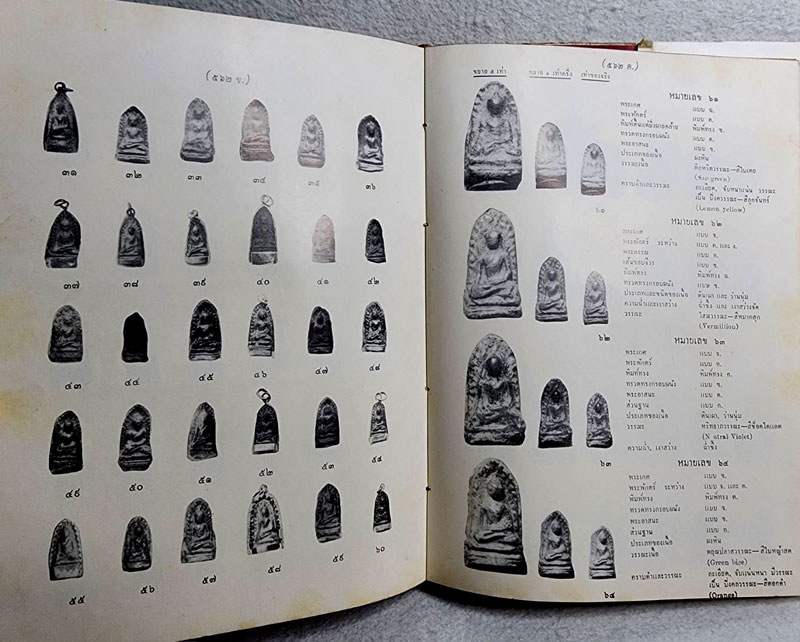 (๕๖๒ ข.)
๓๑ ๓๒ ๓๓ ๓๔ ๓๕ ๓๖
๓๗ ๓๘ ๓๙ ๔๐ ๔๑ ๔๒
๔๓ ๔๔ ๔๕ ๔๖ ๔๗ ๔๘
๔๙ ๕๐ ๕๑ ๕๒ ๕๓ ๕๔
๕๕ ๕๖ ๕๗ ๕๘ ๕๙ ๖๐
(๕๖๒ ค.)
ขยาย ๓ เท่า ขยาย ๑ เท่าครึ่ง เท่าของจริง
หมายเลข ๖๑
พระเกศ แบบ ฉ.
พระพักตร์ แบบ ค.
พิมพ์ทรง ข.
ทรวดทรงกรอบผนัง แบบ ค.
พระอาสนะ แบบ ข.
ประเภทของเนื้อ ผงหิน
วรรณะเนื้อ
(Sap green)
คราบดำและวรรณะ ละเอียด, จับหนาแน่น วรรณะ
เป็น
(Lemon yellow)
๖๑
หมายเลข ๖๒
พระเกศ แบบ ข.
พระพักตร์ ระหว่าง แบบ ค. และ ง.
พระกรรณ แบบ ค.
แบบ ข.
พิมพ์ทรง พิมพ์ทรง ฉ.
ทรวดทรงกรอบผนัง แบบ ข.
ประเภทและชนิดของเนื้อ ดินเผา ว่านนุ่ม
ความฉ่ำ และเงาสว่าง ฉ่ำขึ้ง และ เงาสว่างจัด
วรรณะ
(Vermillion)
๖๒
หมายเลข ๖๓
พระเกศ แบบ ฉ.
พระพักตร์ แบบ ข.
พิมพ์ทรง พิมพ์ทรง ค.
ทรวดทรงกรอบผนัง แบบ ข.
พระอาสนะ แบบ ค.
ส่วนฐาน แบบ ก.
ประเภทของเนื้อ ดินเผา, ว่านนุ่ม
วรรณะ
(N utral Violet)
ความฉ่ำ, เงาสว่าง ฉ่ำขึ้ง
๖๓
หมายเลข ๖๔
พระเกศ แบบ ข.
พระพักตร์ ระหว่าง แบบ ข. และ ค.
พิมพ์ทรง พิมพ์ทรง ค.
ทรวดทรงกรอบผนัง แบบ ข.
พระอาสนะ แบบ ข.
ส่วนฐาน แบบ ก.
ประเภทของเนื้อ ผงหิน
วรรณะเนื้อ
(Green bice)
คราบดำและวรรณะ ละเอียด, จับแน่นหนา มีวรรณะ
เป็น
(Orange)
๖๔